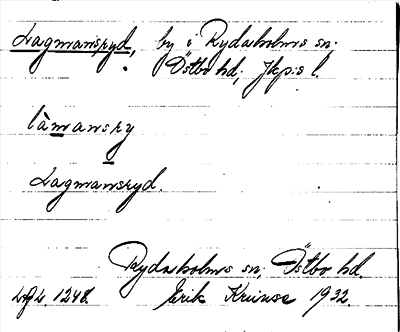 Lagmansryd, by i Rydaholms sn;
Östbo hd; Jkp:s l.
làmansry
Lagmansryd.
Rydaholms sn; Östbo hd.
1248. Erik 1932.